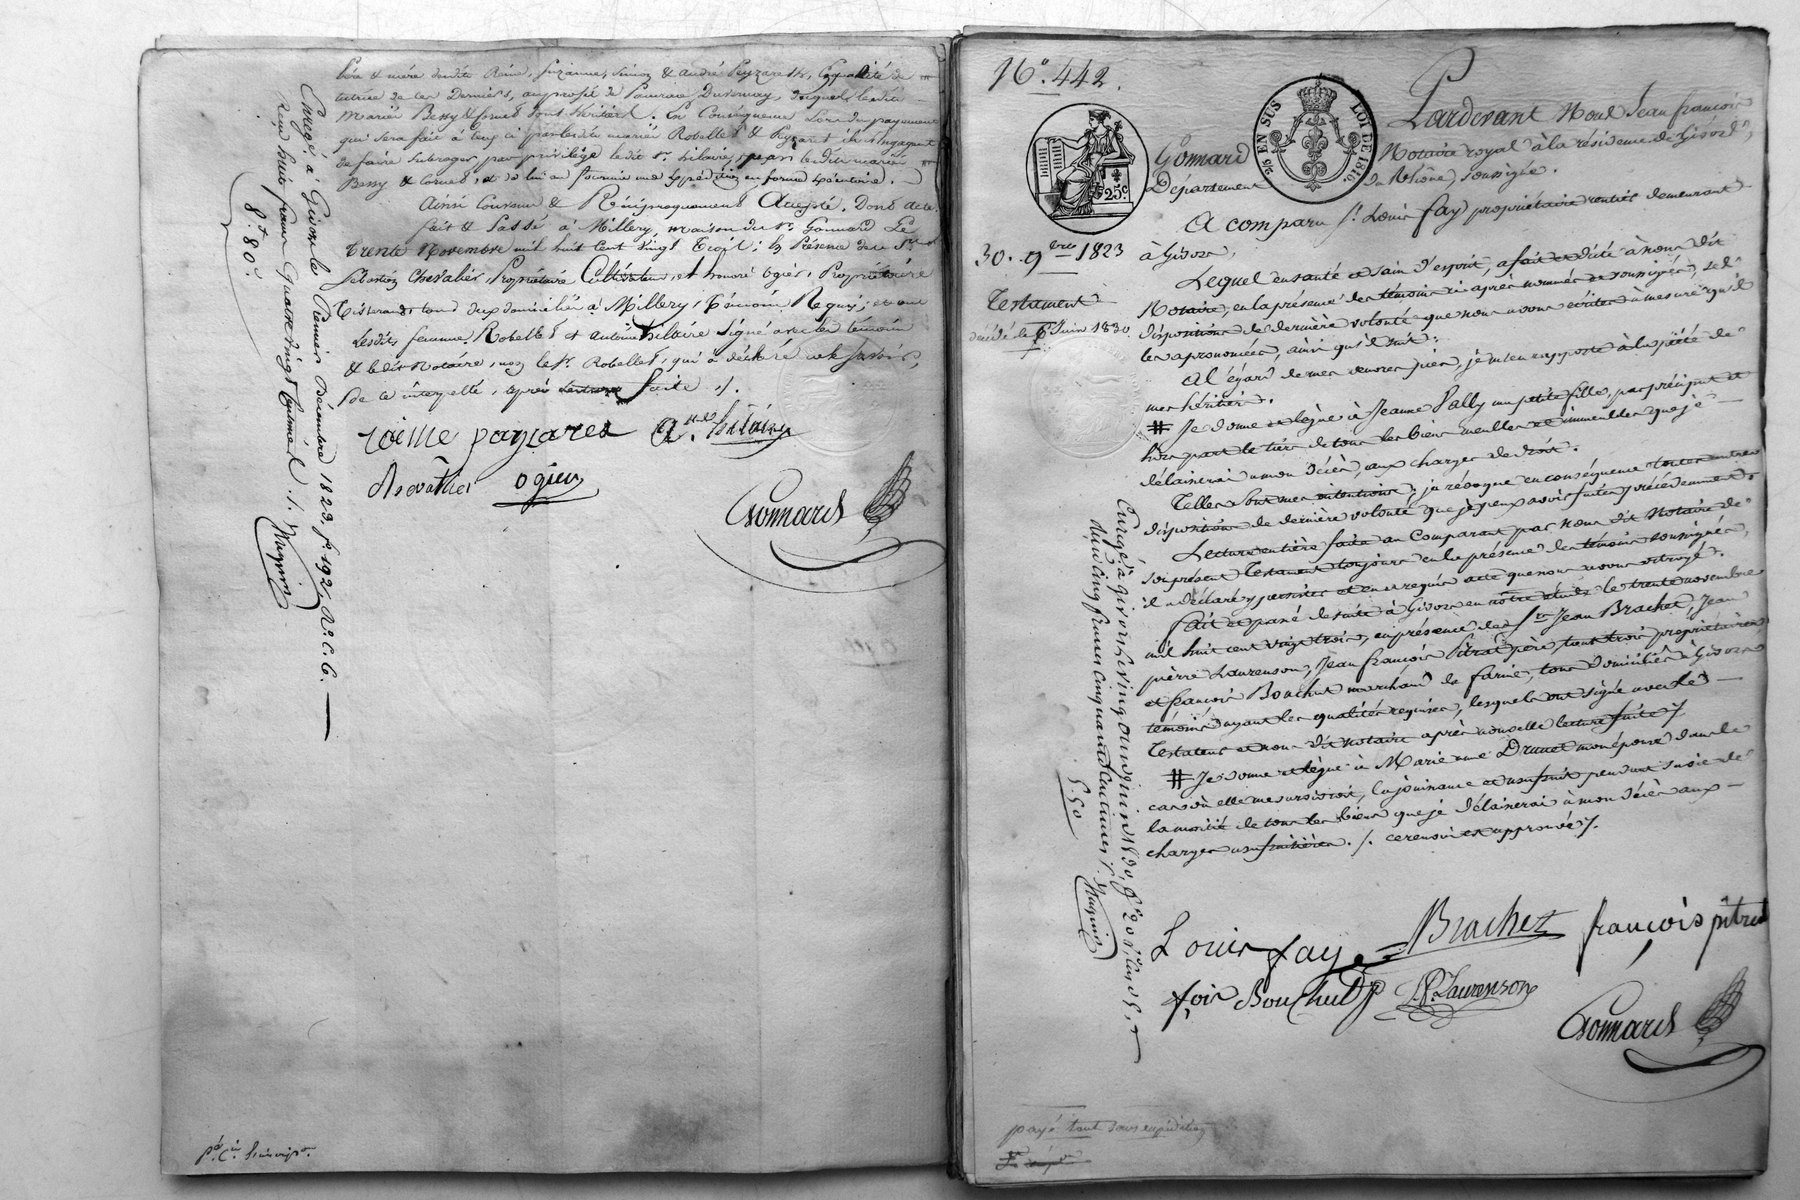 père & mère desdits Reine, Suzanne, Simon & André Peyzaret, en qualité de
tutrice de ces Derniers, au profit de Duvernay, duquel lesdits
Mariés Bessy & Cornet sont héritiers. En Conséquence Lors du payement
qui sera fait à lesdits mariés Robellet & Peyzaret ils s'engagent
de faire Subroger par privilège ledit Sr. hilaire, par lesdits mariés
Bessy & Cornet, et de lui en fournir une Expédition en forme exécutoire.
Ainsi Convenu & Réciproquement Accepté. Dont acte
fait & Passé à Millery, maison du Sr. Gonnard Le
Trente Novembre mil huit Cent vingt Trois; En Présence de
Sébastien Chevalier, Propriétaire Cultivateur, et honoré ogier, Propriétaire
Tisserand tous deux domiciliés à Millery, témoins Requis; et ont
Lesdits femme Robellet & Antoine hilaire signé avec les témoins
& ledit Notaire, non le Sr. Robellet, qui a déclaré ne le savoir,
de ce interpellé, après Lecture faite ./.
reine payzaret Ane. hilaire
chevallier ogier
Gonnard
Enregé. à Givors le Premier Décembre 1823, fo. 192, Ro. C. 6.
Reçu huit francs Quatre vingt Centimes ./.
8f. 80c.
No. 442.
25 EN SUS LOI DE 1816.
25c
Pardevant Nous Jean françois
Gonnard Notaire royal à la résidence de Givors,
Département du Rhône, soussigné.
A comparu Sr. Louis fay propriétaire rentier demeurant
30. 9bre 1823 à Givors,
Lequel en santé et sain d'esprit, a fait et dicté à nous dit
Testament Notaire, en la présence des témoins ci après nommés et soussignés, les
décédé le 6 Juin 1830 dispositions de dernière volonté que nous avons écrites à mesure qu'il
les a prononcées, ainsi qu'il suit:
A l'égard de mes œuvres pies, je m'en rapporte à la piété de
mes héritiers.
# Je donne et lègue à Jeanne Sally ma petite fille, par préciput et
hors part le tiers de tous les biens meubles et immeubles que je
délaisserai à mon décès, aux charges de droit.
Telles sont mes intentions; je révoque en conséquence toutes autres
dispositions de dernière volonté que je peux avoir faites précédemment.
Lecture entière faite au Comparant par nous dit Notaire de
son présent Testament toujours en la présence des témoins soussignés,
il a déclaré y persister et en a requis acte que nous avons octroyé.
fait et passé de suite à Givors en notre étude le trente novembre
mil huit cent vingt trois, en présence des Srs. Jean Brachet, Jean
pierre Laurenson, Jean françois pitrat père, tous trois propriétaires,
et françois Bouchut marchand de farine, tous domiciliés à Givors
témoins ayant les qualités requises, lesquels ont signé avec le
Testateur et nous dit notaire après nouvelle lecture faite ./.
# Je donne et lègue à Marie anne Drunet mon épouse dans le
cas où elle me survivroit, la jouissance et usufruit pendant sa vie de
la moitié de tous les biens que je délaisserai à mon décès aux
charges usufruitières ./. ce renvoi est approuvé ./.
Enregé. à Givors le vingt
reçu cinq francs cinquante centimes ./.
5.50
Louis fay Brachet françois pitrat
fois Bouchut JP. Laurenson
Gonnard
payé tout sans expédition